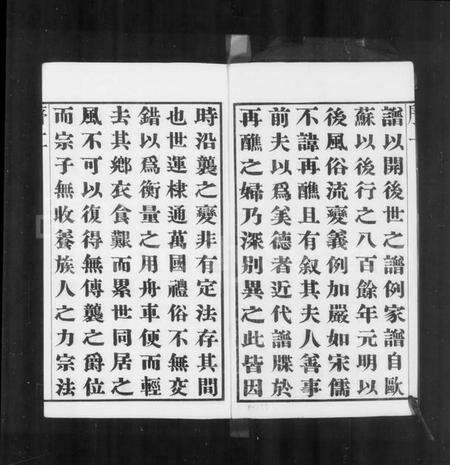 譜以開後世之譜例家譜自歐
蘇以後行之八百餘年元明以
後風俗流變義例加嚴如宋儒
不諱再醮且有叙其夫人善事
前夫以爲美德者近代譜牒於
再醮之婦乃深別異之此皆因
時沿襲之變非有定法存其間
也世運棣通萬國禮俗不無交
錯以爲衡量之用舟車便而輕
去其鄉衣食艱而累世同居之
風不可以復得無傳襲之爵位
而宗子無收養族人之力宗法